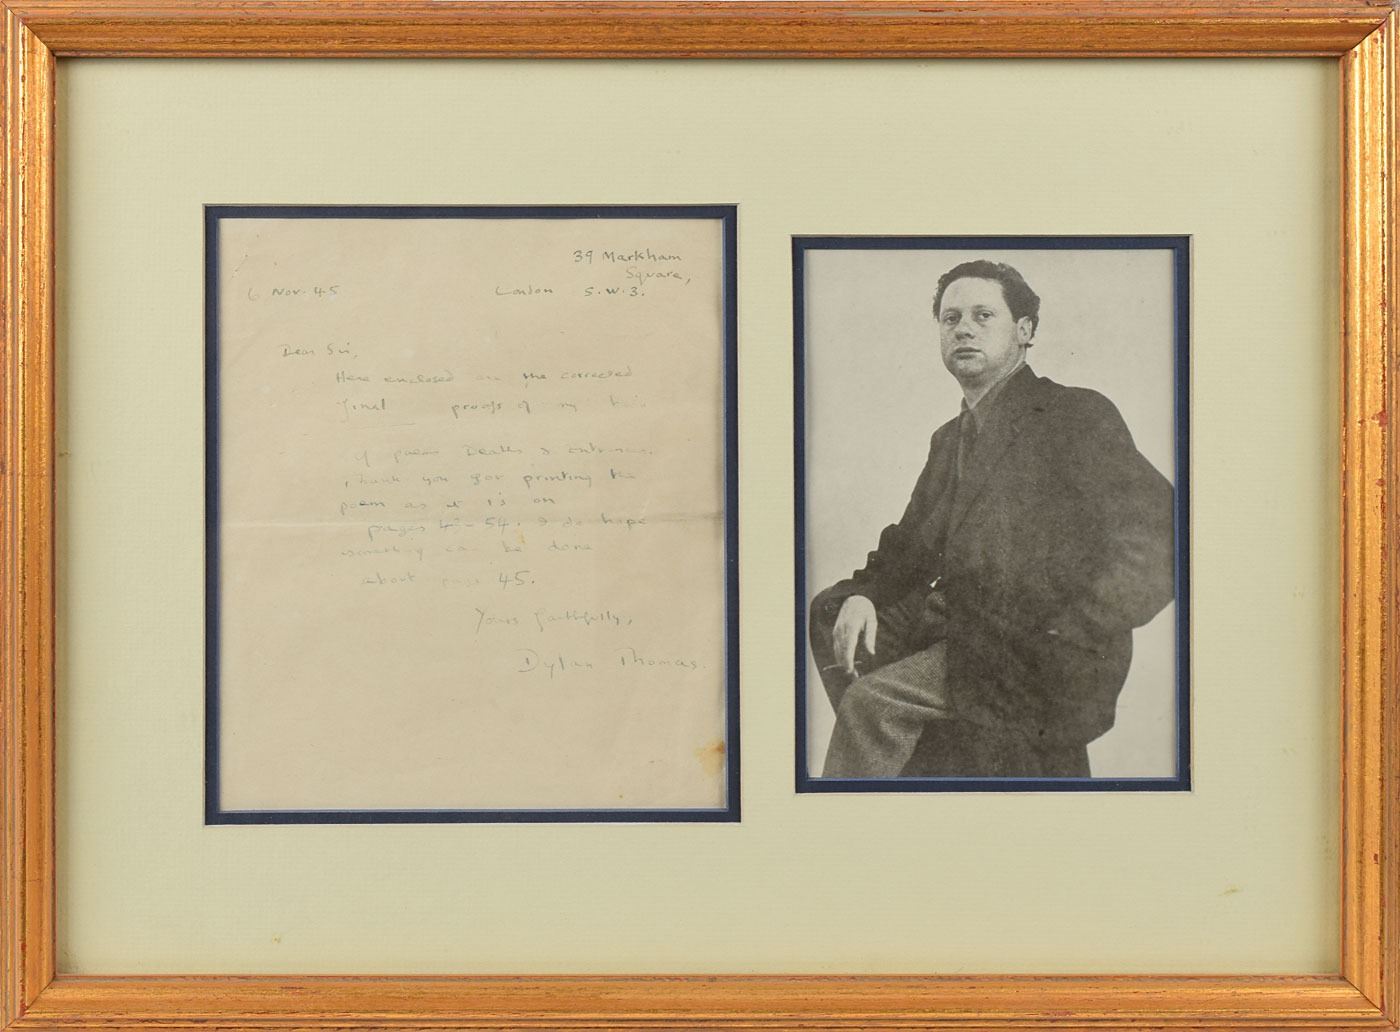 39 Markham
Square,
6 Nov. 45 London S.W.3.
Dear Sir,
Here enclosed are the corrected
final proofs of my
of poems Deaths & Entrances.
Thank you for printing the
poem as it is on
pages 54. I do hope
something can be done
about page 45.
Yours faithfully,
Dylan Thomas.